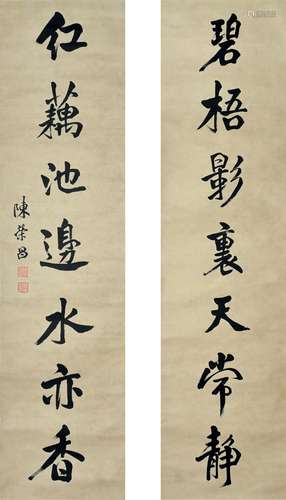 碧梧影裏天常静
红藕池邊水亦香
陳荣昌